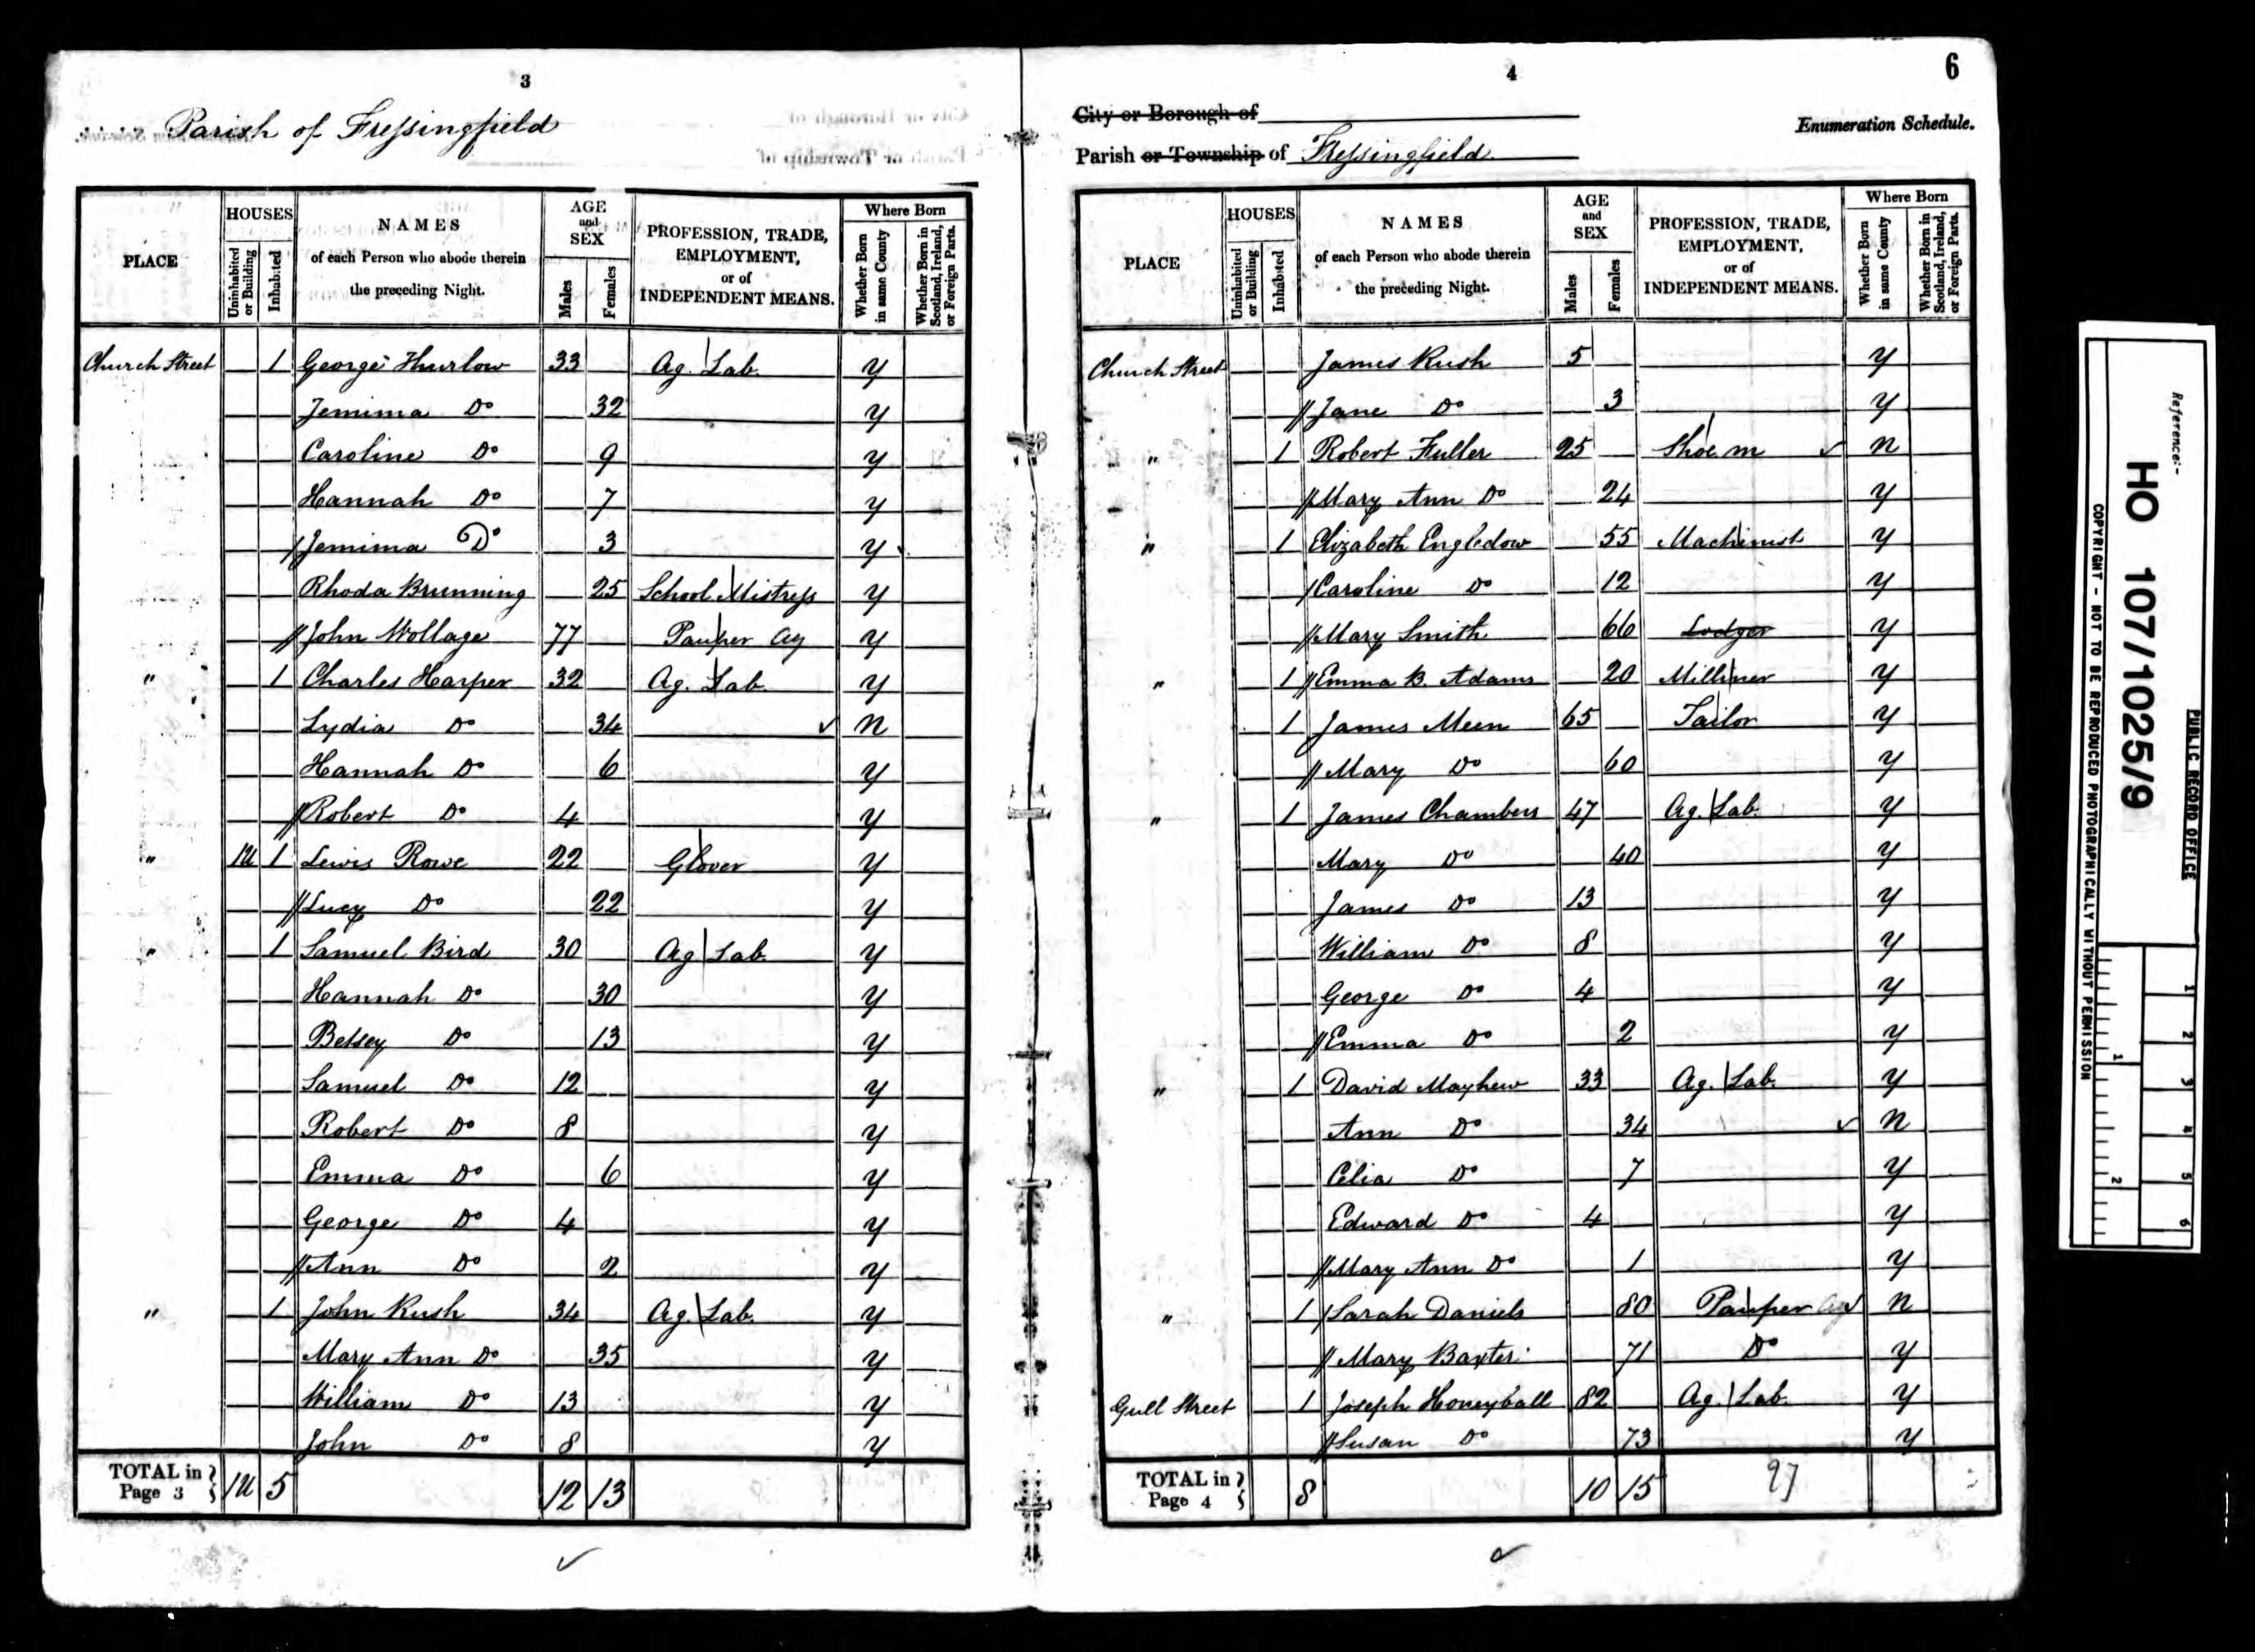 3
Parish of Fressingfield
PLACE
HOUSES
Uninhabited or Building
Inhabited
NAMES
of each Person who abode therein
the preceding Night.
AGE
and
SEX
Males
Females
PROFESSION, TRADE,
EMPLOYMENT,
or of
INDEPENDENT MEANS.
Where Born
Whether Born in same County
Whether Born in Scotland, Ireland, or Foreign Parts.
Church Street 1 George Thurlow 33 Ag. Lab. y
Jemima Do 32 y
Caroline Do 9 y
Hannah Do 7 y
Jemima Do 3 y
Rhoda Brunning 25 School Mistress y
John Wollage 77 Pauper Ag y
" 1 Charles Harper 32 Ag. Lab. y
Lydia Do 34 n
Hannah Do 6 y
Robert Do 4 y
" 1U 1 Lewis Rowe 22 Glover y
Lucy Do 22 y
" 1 Samuel Bird 30 Ag Lab. y
Hannah Do 30 y
Betsey Do 13 y
Samuel Do 12 y
Robert Do 8 y
Emma Do 6 y
George Do 4 y
Ann Do 2 y
" 1 John Rush 34 Ag. Lab. y
Mary Ann Do 35 y
William Do 13 y
John Do 8 y
TOTAL in Page 3 1U 5 12 13
4
6
City or Borough of
Enumeration Schedule.
Parish or Township of Fressingfield
PLACE
HOUSES
Uninhabited or Building
Inhabited
NAMES
of each Person who abode therein
the preceding Night.
AGE
and
SEX
Males
Females
PROFESSION, TRADE,
EMPLOYMENT,
or of
INDEPENDENT MEANS.
Where Born
Whether Born in same County
Whether Born in Scotland, Ireland, or Foreign Parts.
Church Street James Rush 5 y
Jane Do 3 y
" 1 Robert Fuller 25 Shoe m n
Mary Ann Do 24 y
" 1 Elizabeth Engledow 55 Machinist y
Caroline Do 12 y
Mary Smith 66 Lodger y
" 1 Emma B. Adams 20 Milliner y
1 James Meen 65 Tailor y
Mary Do 60 y
" 1 James Chambers 47 Ag. Lab. y
Mary Do 40 y
James Do 13 y
William Do 8 y
George Do 4 y
Emma Do 2 y
" 1 David Mayhew 33 Ag. Lab. y
Ann Do 34 n
Celia Do 7 y
Edward Do 4 y
Mary Ann Do 1 y
" 1 Sarah Daniels 80 Pauper Ag n
Mary Baxter 71 Do y
Gull Street 1 Joseph Honeyball 82 Ag. Lab. y
Susan Do 73 y
TOTAL in Page 4 8 10 15
Reference:-
HO 107/1025/9
PUBLIC RECORD OFFICE
COPYRIGHT - NOT TO BE REPRODUCED PHOTOGRAPHICALLY WITHOUT PERMISSION
1
2
3
4
5
6
1
2